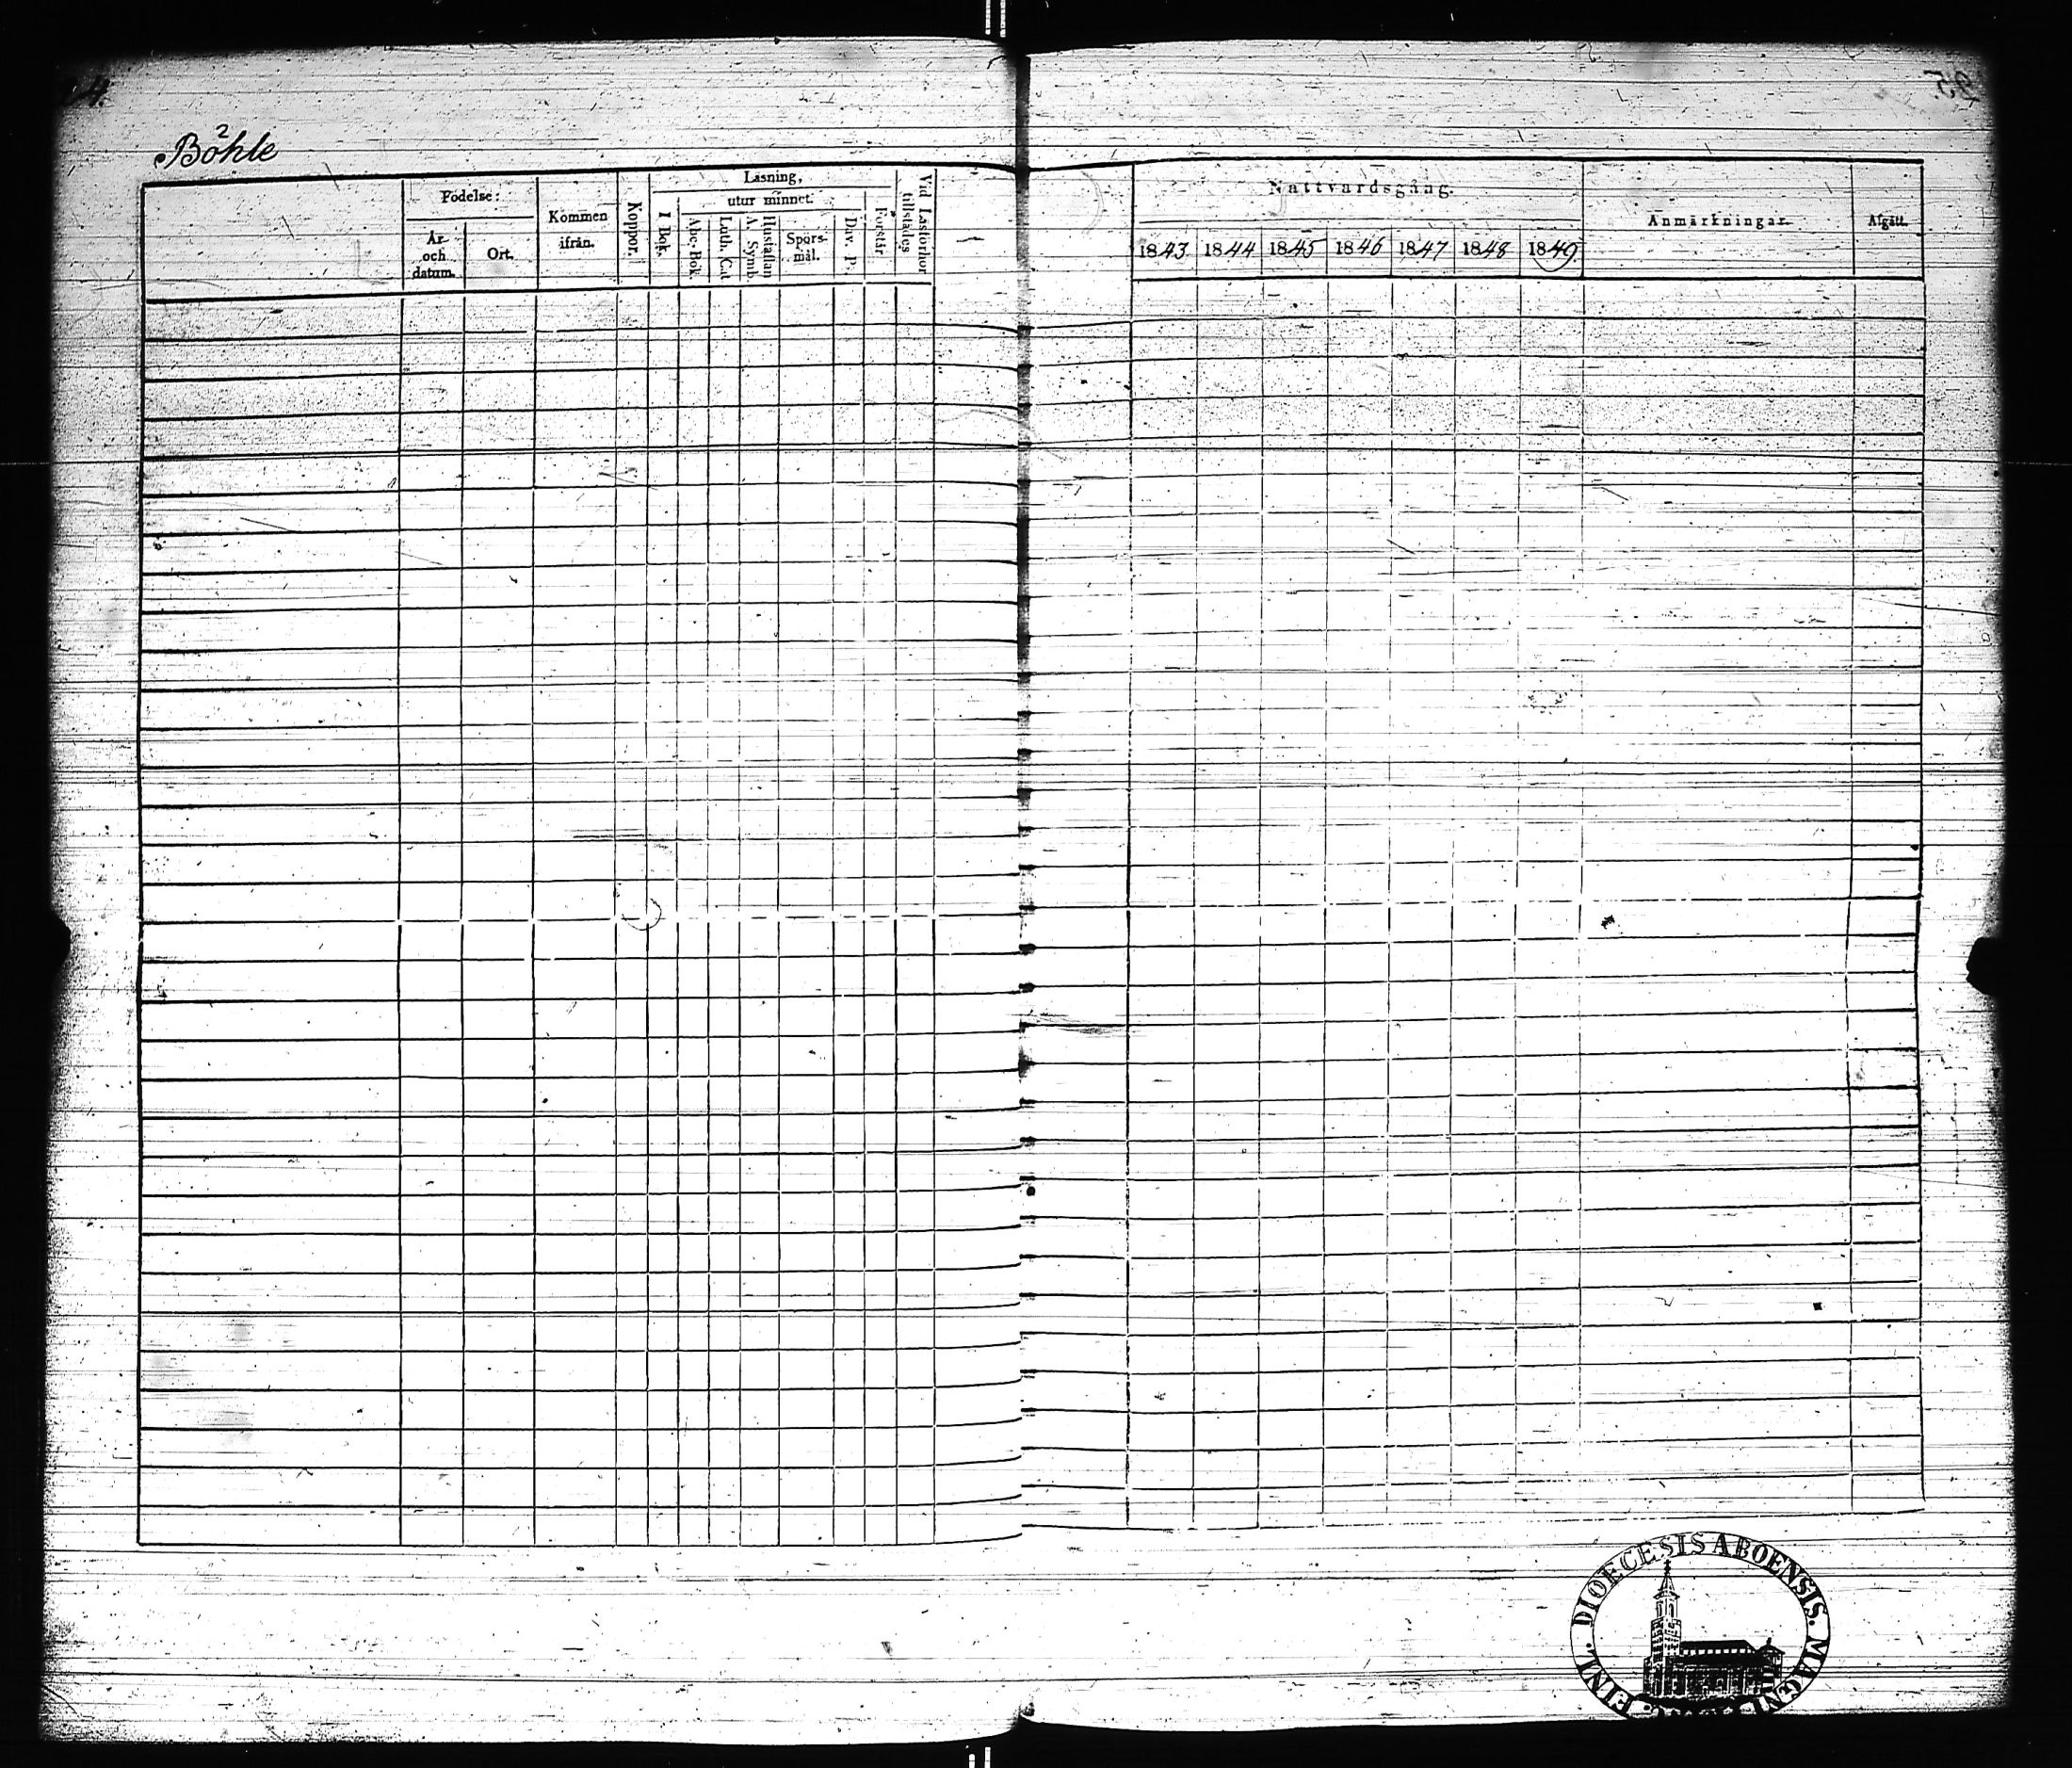 4.
2
Böhle
Födelse:
År och datum.
Ort.
Kommen ifrån.
Koppor.
Läsning,
utur minnet.
I Bok.
Abc-Bok.
Luth. Cat
A. Symb. Hustaflan
Spörs-mål.
Dav. P.
Förstår
Vid Läsförhör tillstädes
Nattvardsgång.
1843 1844 1845 1846 1847 1848 1849
Anmärkningar.
Afgått.
DIOECESIS ABOENSIS. MAGNI